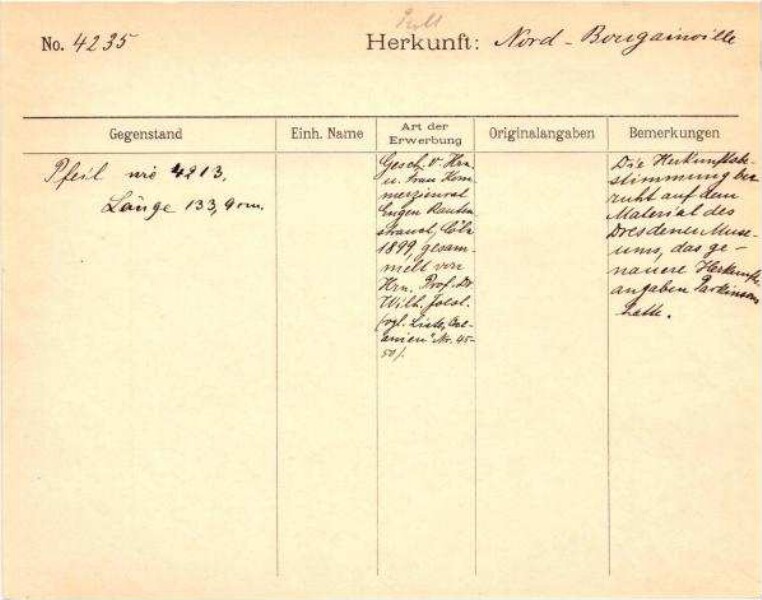 No. 4235
Herkunft: Nord-Bougainville
Gegenstand
Einh. Name
Art der
Erwerbung
Originalangaben
Bemerkungen
Pfeil wie 4213.
Länge 133,9 cm.
Gesch. v. Hrn.
u. Frau Kom-
merzienrat
Eugen Rauten-
strauch, Cöln
1899, gesam-
melt von
Hrn. Prof. Dr.
Wilh. Joest.
(vgl. Liste, "Oce-
anien" Nr. 45-
50).
Die Herkunftsbe-
stimmung be-
ruht auf dem
Material des
Dresdener Muse-
ums, das ge-
nauere Herkunfts-
angaben Parkinsons
hatte.